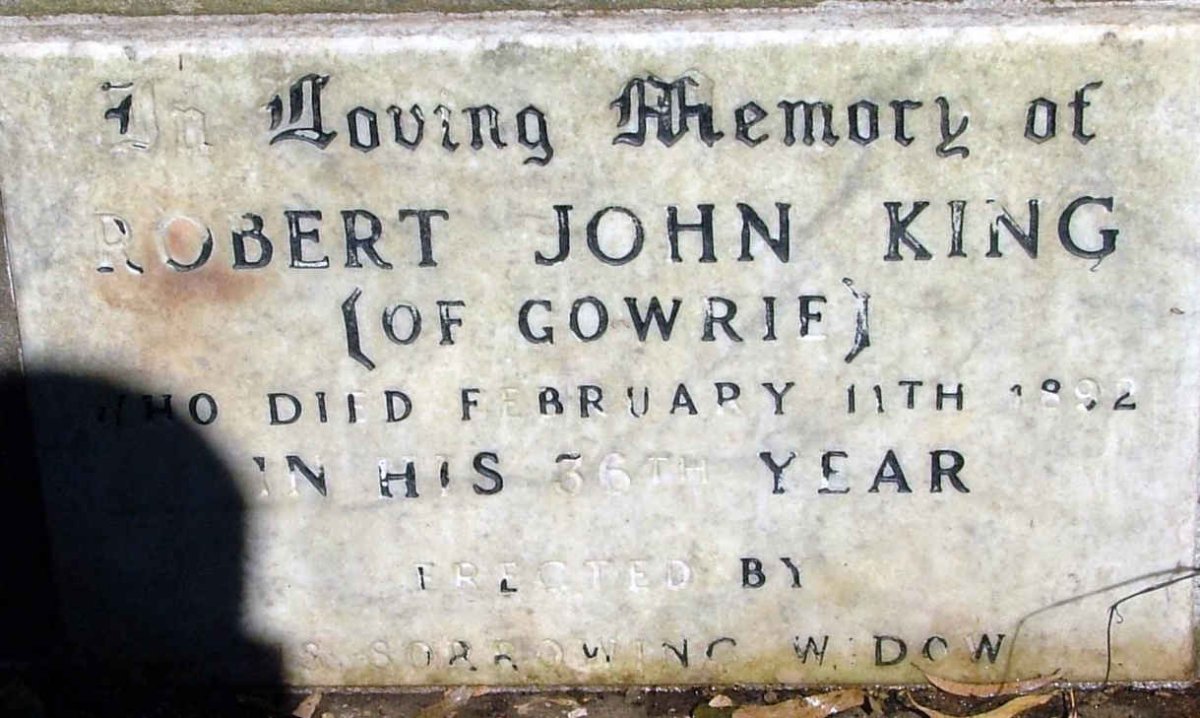 In Loving Memory of
ROBERT JOHN KING
(OF GOWRIE)
WHO DIED FEBRUARY 11TH 1892
IN HIS 36TH YEAR
ERECTED BY
SORROWING WIDOW